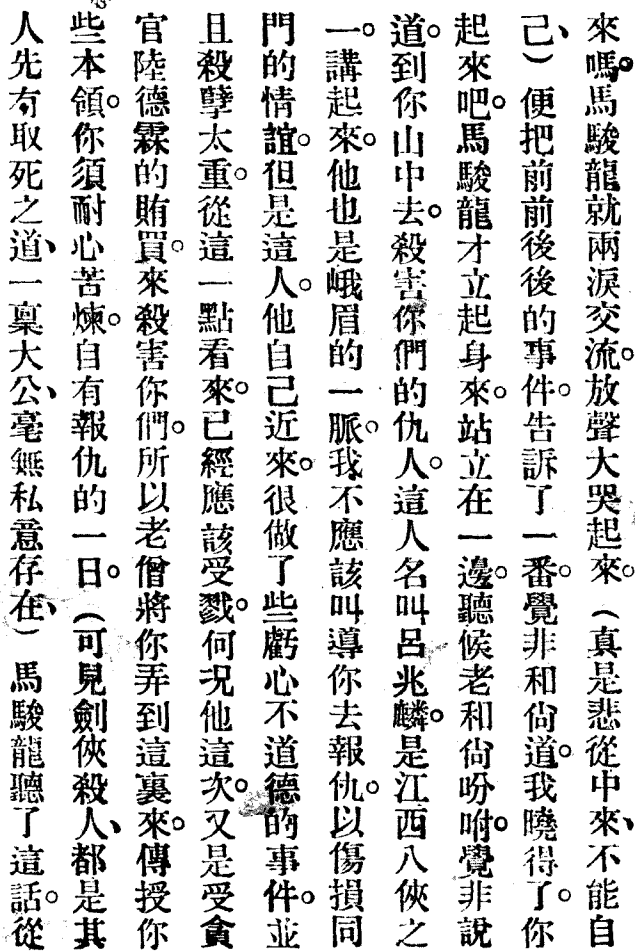 來嗎。馬駿龍就兩淚交流。放聲大哭起來。（真是悲從中來、不能自
己、）便把前前後後的事件。告訴了一番。覺非和尙道。我曉得了。你
起來吧。馬駿龍才立起身來。站立在一邊。聽候老和尙吩咐。覺非說
道。到你山中去。殺害你們的仇人。這人名叫呂兆麟。是江西八俠之
一。講起來。他也是峨眉的一脈。我不應該叫導你去報仇。以傷損同
門的情誼。但是這人。他自己近來。很做了些虧心不道德的事件。並
且殺孽太重。從這一點看來。已經應該受戮。何况他這次。又是受貪
官陸德霖的賄買。來殺害你們。所以老僧將你弄到這裏來。傳授你
些本領。你須耐心苦煉。自有報仇的一日。（可見劍俠殺人、都是其
人先有取死之道、一稟大公、毫無私意存在、）馬駿龍聽了這話。從